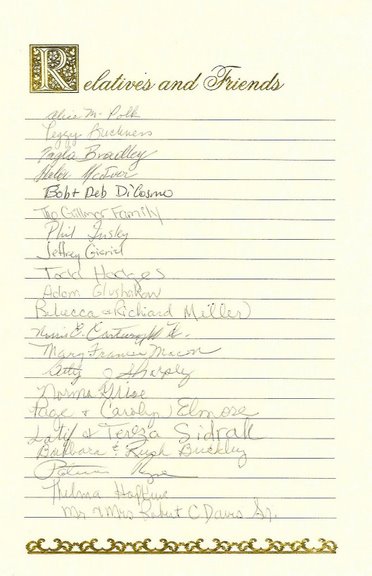 Relatives and Friends
Alice M. Polk
Peggy Buckners
Kayla Bradley
Helen McIver
Bob + Deb DiCosmo
The Gillmor Family
Phil Insky
Jeffrey
Todd Hodges
Adam Glushakow
Rebecca & Richard Miller
E. Jr.
Mary Frances Macon
Sharply
Norma Grise
Page & Carolyn Elmore
Latif & Teresa Sidrak
Barbara & Rush Buckley
Thelma Hopkins
Mr & Mrs Robert C Davis Sr.